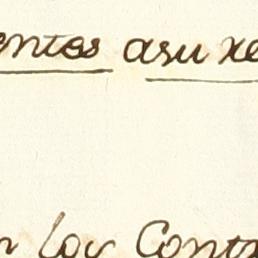 entos asu re
n los Conta